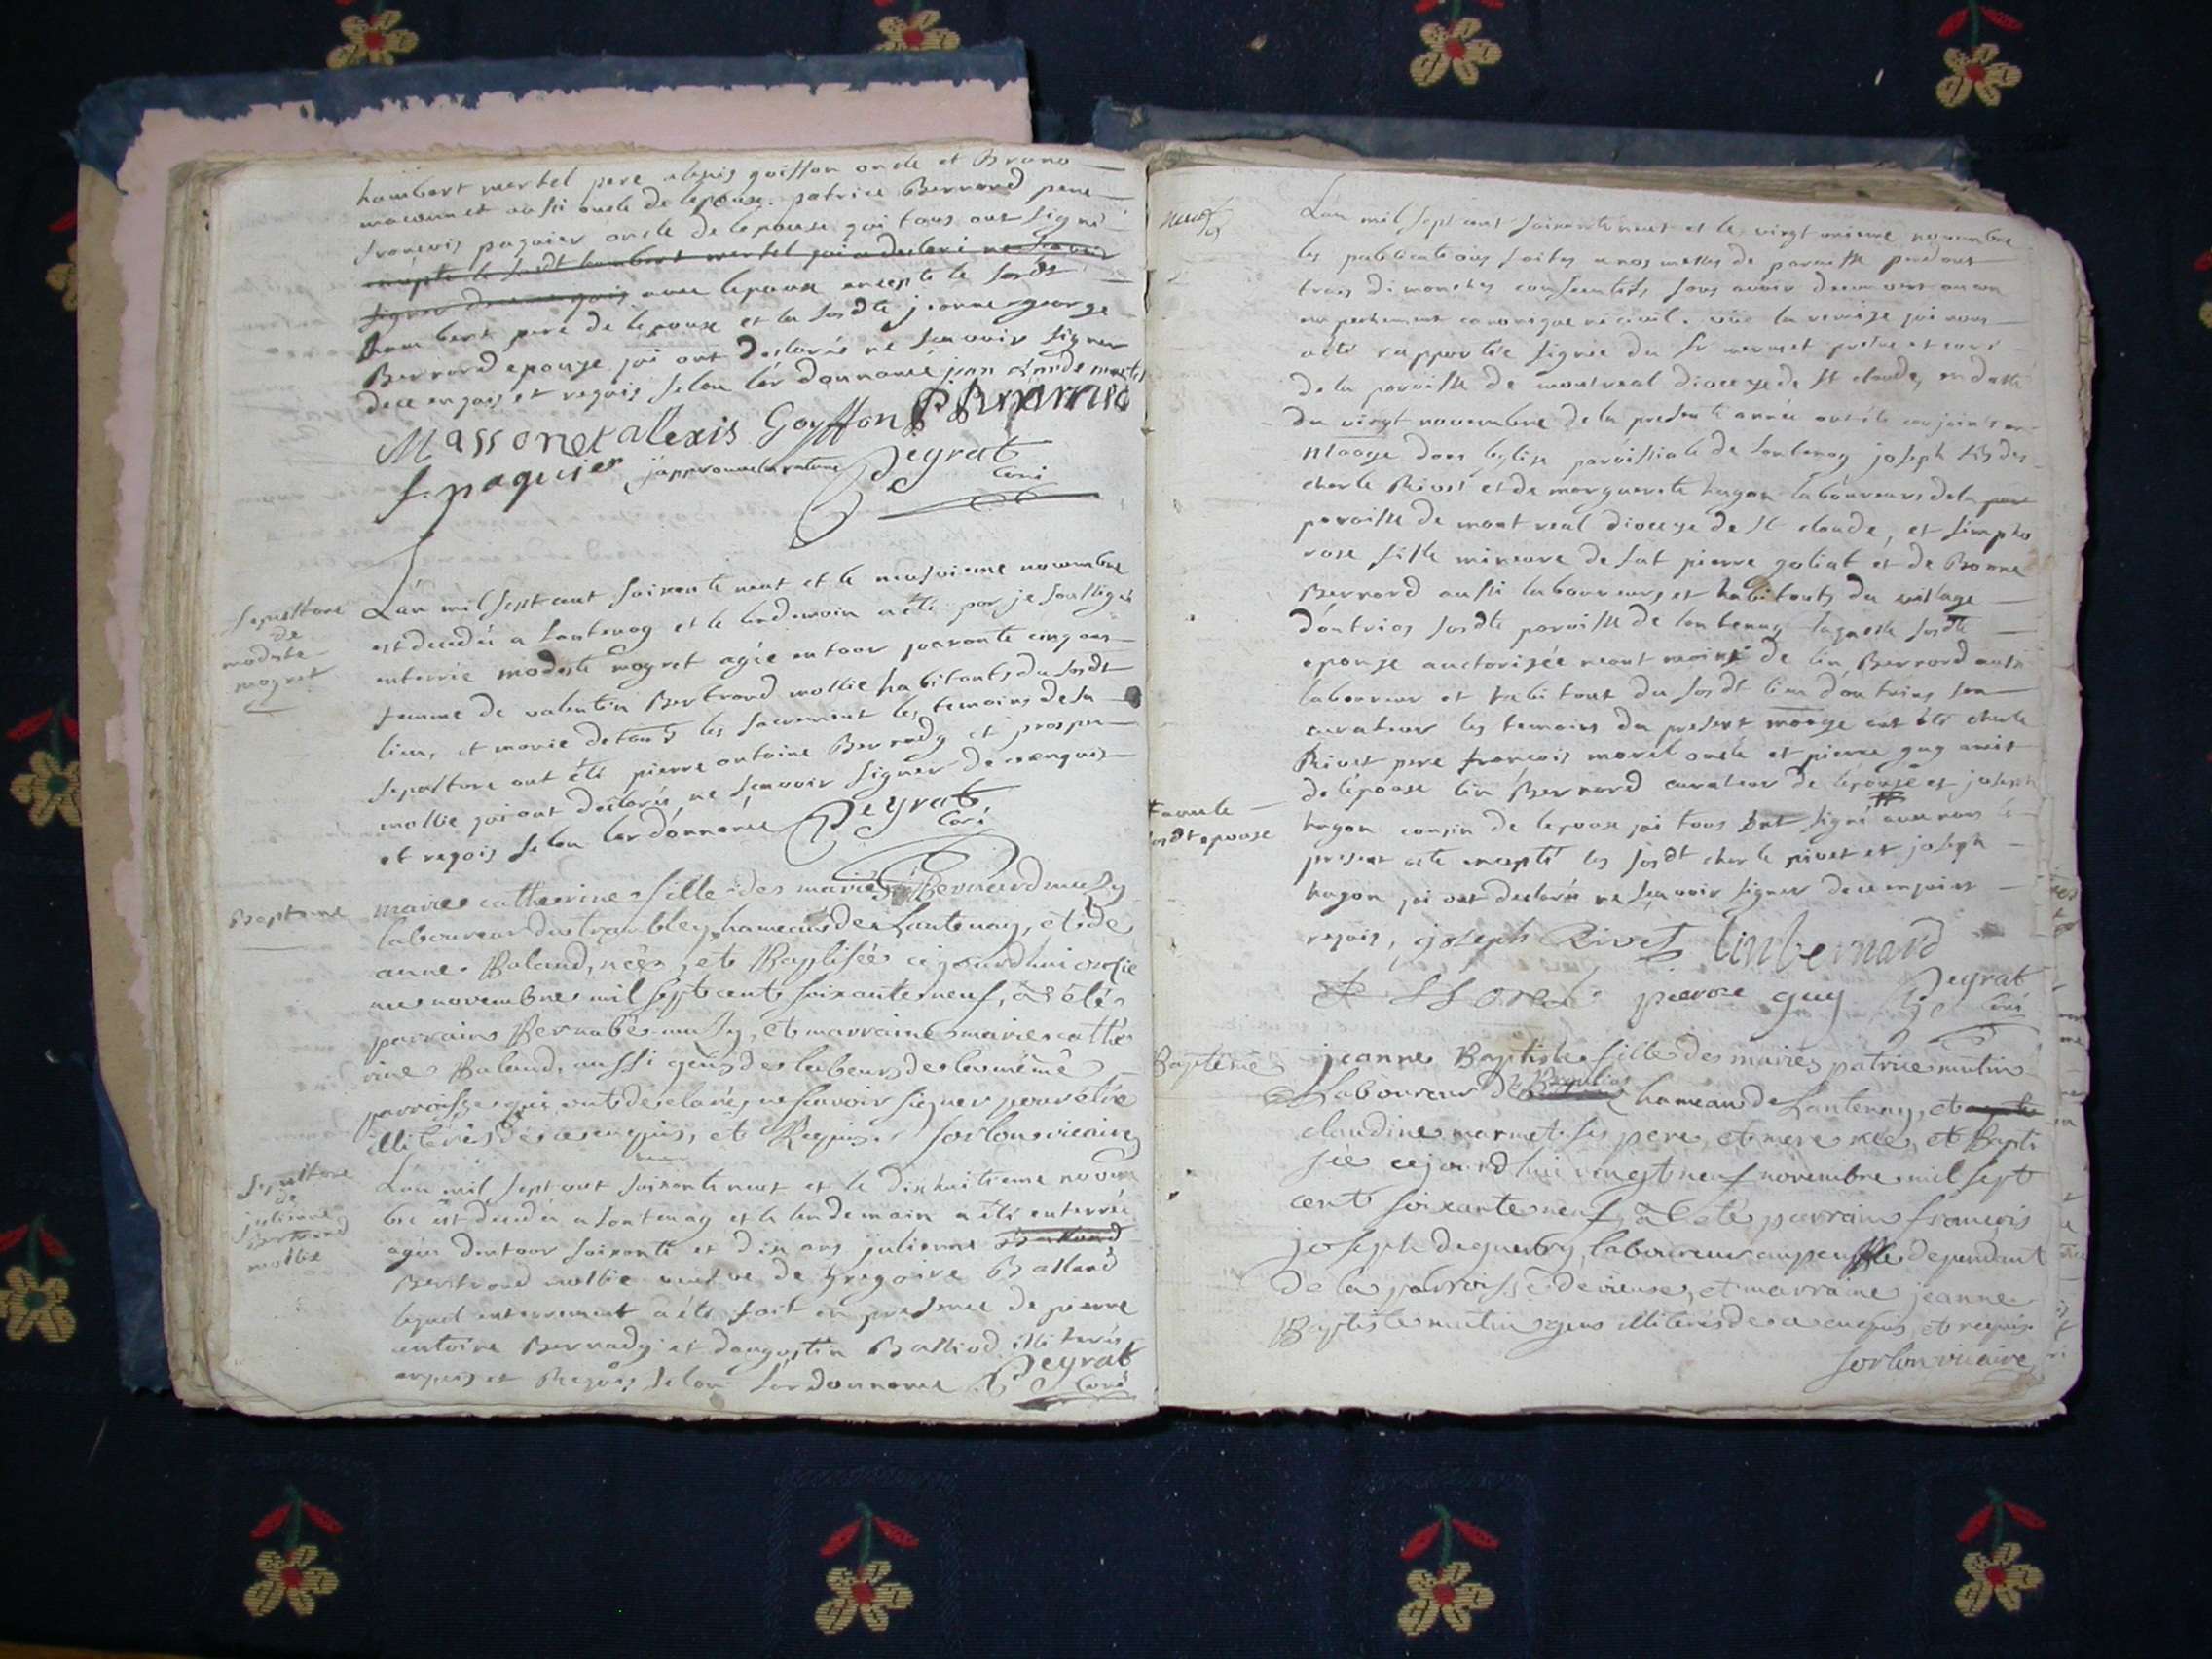 humbert martel pere alexis goiffon oncle et Bruno
massonnet aussi oncle de lepoux. patrice Bernard pere
françois paquier oncle de lepouse qui tous ont signé
excepté le susdt humbert martel qui a declaré ne scavoir
signer de ce requis avec lepoux excepté le susdt
humbert pere de lepoux et la susdte jeanne george
Bernard epouse qui ont declarés ne scavoir signer
de ce enquis et requis selon lordonnance jean claude martel
Massonet alexis Goyffon P Bernard
f. paquier japprouve la rature Peyrat
Curé
Sepulture
de
modeste
mogret
Lan mil sept cent soixante neuf et le neuvieme novembre
est decedée a Lantenay et le lendemain a été par je soussigné
enterrée modeste mogret agée entour quarante cinq ans
femme de valentin Bertrand mollie habitants du susdt
lieu, et munie de touts les sacrement les temoins de sa
sepulture ont été pierre antoine Bernady et prosper
mollie qui ont declarés ne sçavoir signer de ce enquis
et requis selon lordonnance Peyrat
Curé
Baptême
marie catherine fille des mariés Bernard musy
laboureur du trambley hameau de Lantenay, et de
anne Baland, née, et Baptisée ce jourdhui onzie
me novembre mil sept cent soixante neuf, a été
parrain Bernabé musy, et marraine marie cathe
rine Baland, aussi gens de labeur de la même
parroisse qui ont declarés ne scavoir signer pour être
illiterés de ce enquis, et Requis. sorlon vicaire
Sepulture
de
julienne
Bertrand
mollie
Lan mil sept cent soixante neuf et le dix huitieme novem
bre est decedée a Lantenay et le lendemain a été enterrée
agée dentour soixante et dix ans julienne Bertrand
Bertrand mollie veufve de Gregoire Balland
lequel enterrement a été fait en presence de pierre
antoine Bernady et daugustin Balliod illiterés
enquis et Requis selon lordonnance Peyrat
Curé
Lan mil sept cent soixante neuf et le vingt unieme novembre
les publications faites a nos messes de paroisse pendant
trois dimanches consecutifs, sans avoir decouvert aucun
empechement canonique ni civil. vüe la remise qui nous
a été rapportée signée du Sr mermet pretre et curé
de la paroisse de montreal diocese de St claude, en datte
du vingt novembre de la presente année ont été conjoints en
mariage dans leglise paroissiale de Lantenay joseph fils de
charle Rivet et de marguerite hugon laboureurs de la par
paroisse de montreal diocese de St claude, et simpho
rose fille mineure de fut pierre goliat et de Bonne
Bernard aussi laboureurs et habitants du village
doutrias susdte paroisse de lantenay laquelle susdte
epouse auctorisée neant moins de lin Bernard aussi
laboureur et habitant du susdt lieu doutrias son
curateur les temoins du present mariage ont été charle
Rivet pere françois morel oncle et pierre guy amis
de lépoux lin Bernard curateur de lépouse et joseph
+ avec le
susdt epoux
hugon cousin de lepouse qui tous ont signé avec nous le
present acte excepté les susdt charle rivet et joseph
hugon qui ont declaré ne sçavoir signer de ce enquis
requis, joseph Rivet lin bernard
pierre guy Peyrat
Curé
Baptême
jeanne Baptiste fille des mariés patrice mutin
Laboureur de hameau de Lantenay, et
claudine marmet ses pere, et mere née, et Bapti
sée ce jourdhui vingt neuf novembre mil sept
cent soixante neuf, a été parrain françois
joseph deguerry, laboureur dependant
de la parroisse de vieuse, et marraine jeanne
Baptiste mutin gens illiterés de ce enquis, et requis
sorlon vicaire